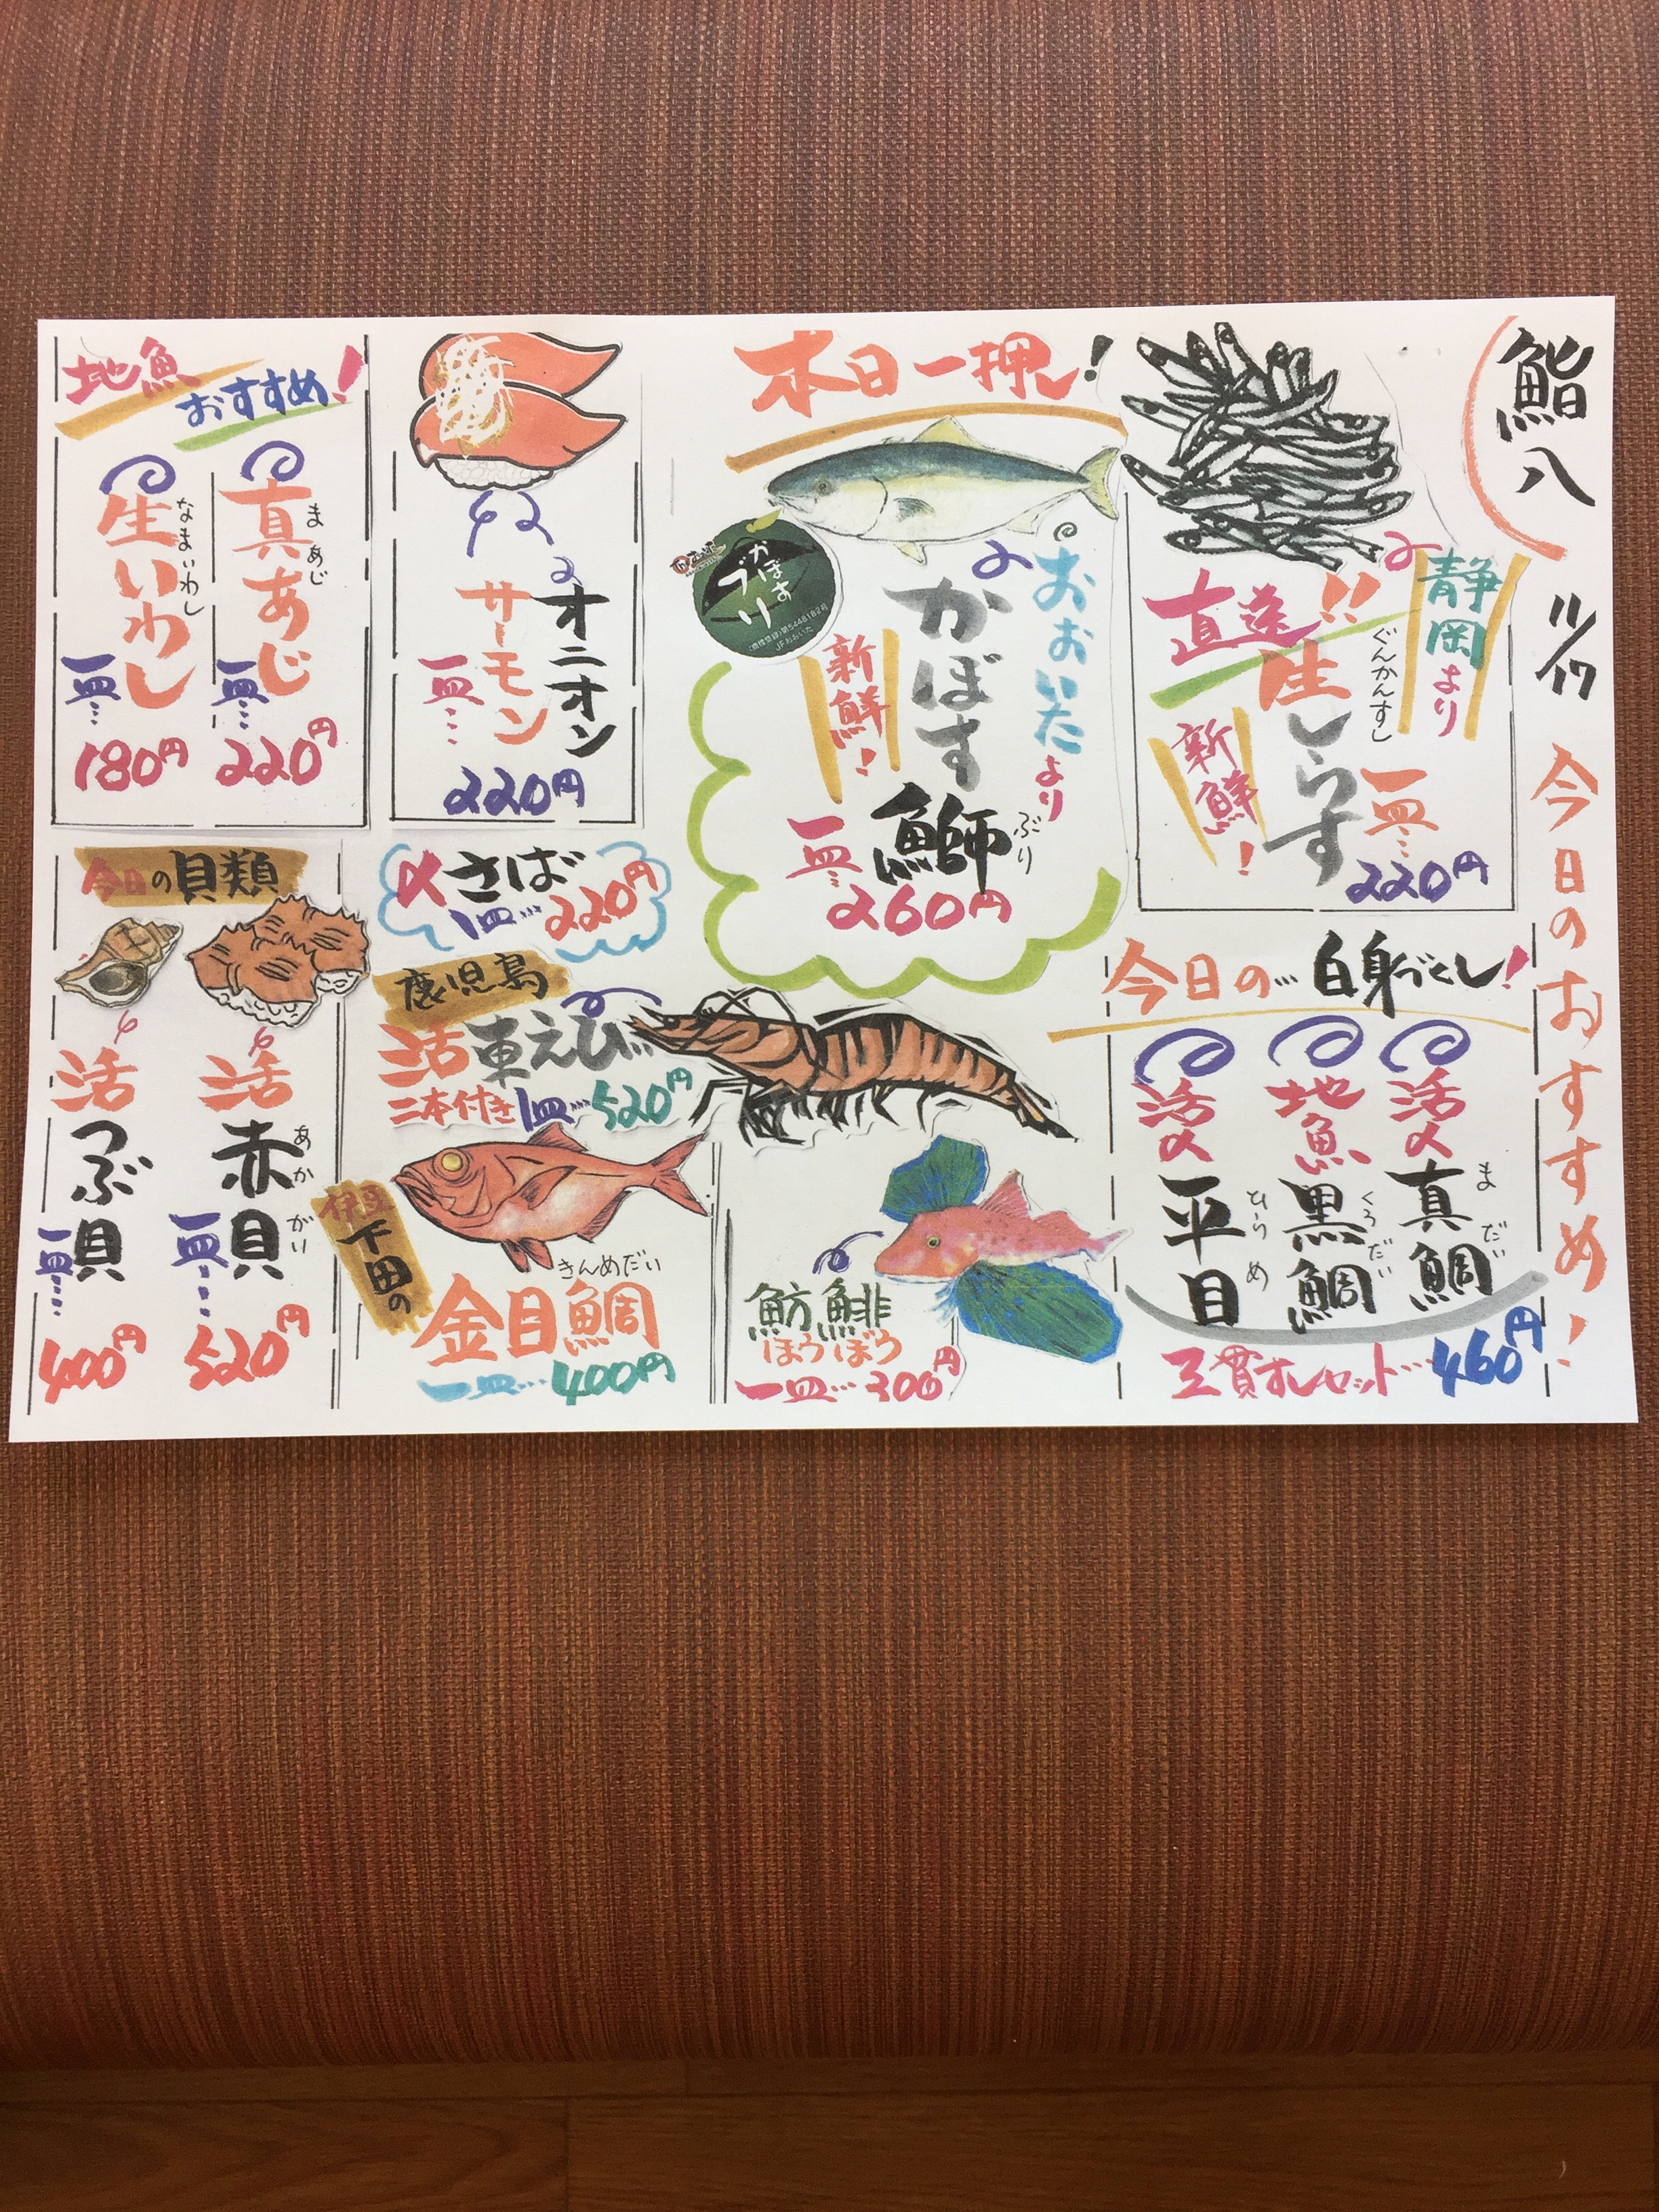 鮨八
11/17
今日のおすすめ!
静岡より
直送!!
ぐんかんすし
生しらす
新鮮!
一皿…
220円
本日一押し!
おおいたより
かぼす
鰤
ぶり
新鮮!
かぼす
ブリ
(商標登録)第5448182号
JFおおいた
一皿…
260円
オニオン
サーモン
一皿…
220円
地魚
おすすめ!
真あじ
まあじ
一皿…
220円
生いわし
なまいわし
一皿…
180円
今日の…白身づくし!
活〆
真鯛
まだい
地魚
黒鯛
くろだい
活〆
平目
ひらめ
三貫すしセット…460円
魴鯡
ほうぼう
一皿…300円
〆さば
1皿…220円
鹿児島
活車えび…
二本付き1皿…520円
伊豆
下田の
きんめだい
金目鯛
一皿…400円
今日の貝類
活
赤貝
あかがい
一皿…
520円
活
つぶ貝
一皿…
400円